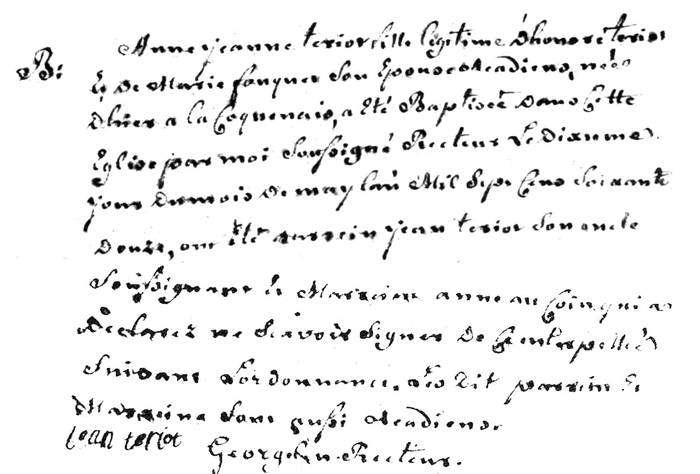 B:
Anne jeanne terior fille legitime d'honoré terior
Et De Marie fouquer Son Epouse Acadiens, née
D'hier a la Coquenais, a Eté Baptisée Dans Cette
Eglise par moi Soussigné Recteur Le Dixieme
jour Du mois De may l'an Mil Sept Cens Soixante
Douze, ont Eté parrein jean terior Son oncle
Soussignant Et Marreine anne au Coin qui a
Declarez ne Scavoir Signer De Ce Interpellée
Suivant L'ordonnance. Les Dit parrein Et
Marreine Sont aussi Acadiens.
jean teriot
Georgelin Recteur.